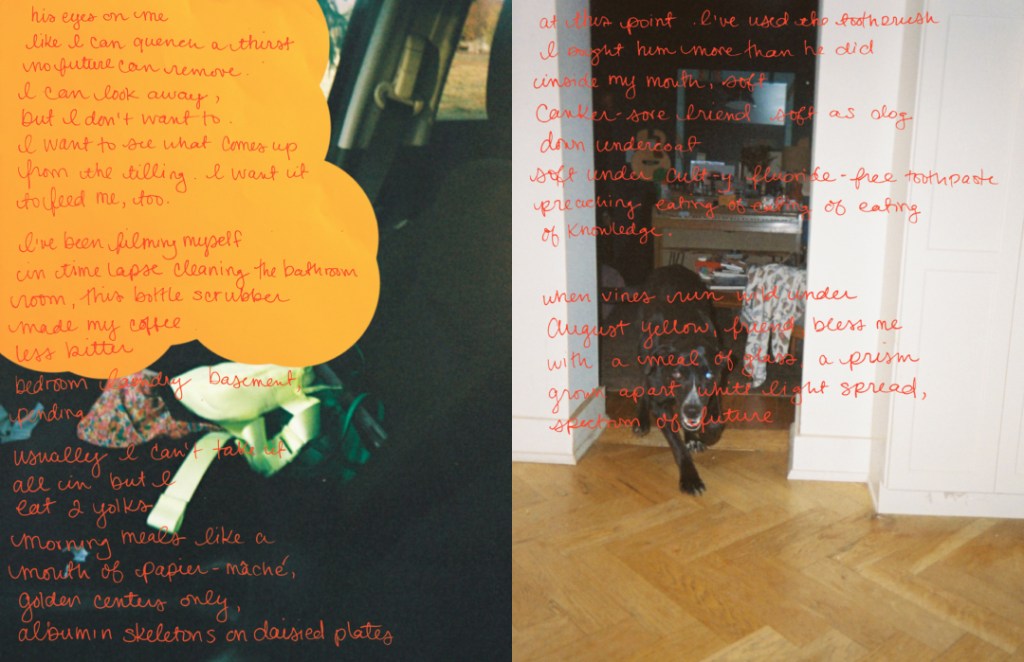 his eyes on me
like I can quench a thirst
no future can remove.
I can look away,
but I don't want to.
I want to see what comes up
from the tilling. I want it
to feed me, too.
I've been filming myself
in time lapse cleaning the bathroom
room, this bottle scrubber
made my coffee
less bitter
bedroom laundry basement,
pending
usually I can't take it
all in but I
eat 2 yolks
morning meals like a
mouth of papier-mâché,
golden centers only,
albumin skeletons on daisied plates
at this point I've used the toothbrush
I bought him more than he did
inside my mouth, soft
Canker-sore friend soft as dog
down undercoat
soft under cult-y fluoride-free toothpaste
preaching eating of eating of eating
of knowledge.
when vines run wild under
August yellow, friend bless me
with a meal of glass a prism
grown apart white light spread,
spectrum of future